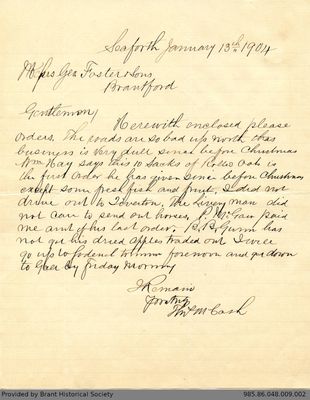 Seaforth January 13th 1904
Messrs Geo Foster & Sons
Brantford
Gentlemen
Herewith enclosed please
orders. The roads are so bad up north that
business is very dull since before Christmas
Wm Hay says this 10 Sacks of Rolled Oats is
the first order he has given since before Christmas
except some fresh fish and fruit. I did not
drive out to Staverton. The livery man did
not care to send out horses. P. McGaw paid
me amt of his last order. B. B. Gunn has
not got his dried apples traded out I will
go up to Goderich to-morrow forenoon and go down
to by Friday Morning
I Remain
Yours truly
McCosh
Provided by Brant Historical Society
985.86.048.009.002